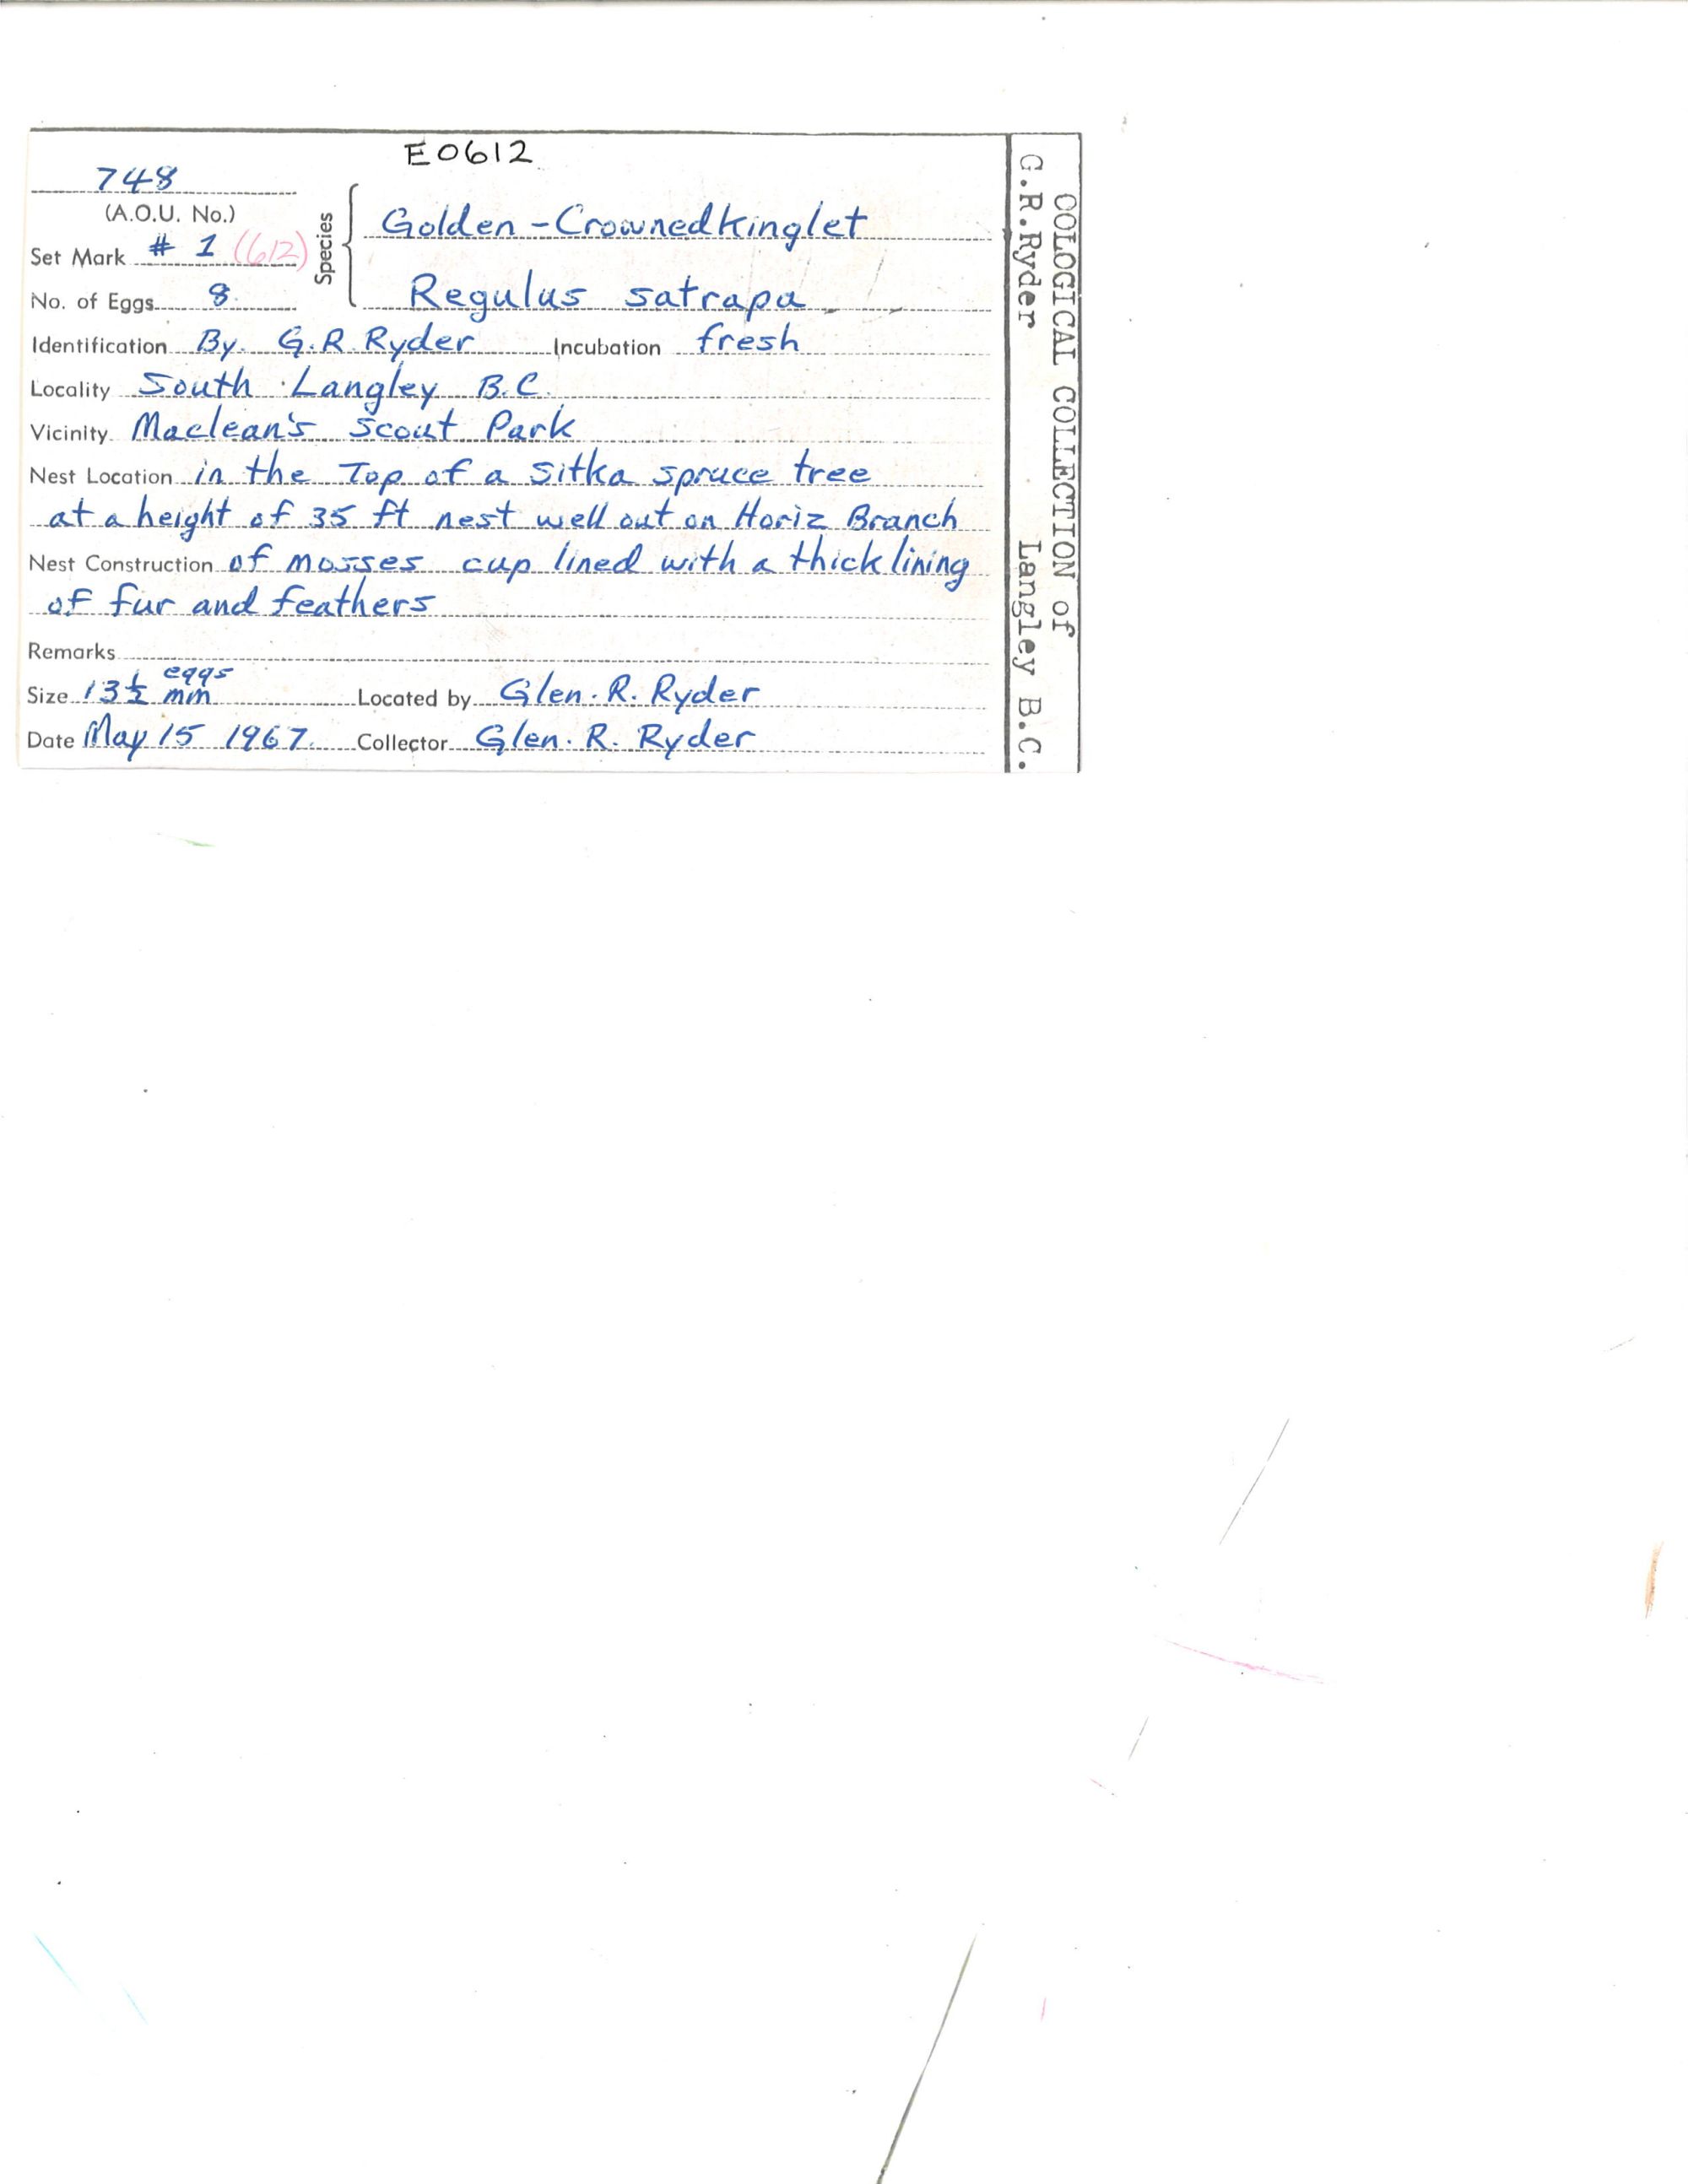 E0612
748
(A.O.U. No.)
Set Mark # 1 (612)
No. of Eggs 8
Species
Golden-Crowned Kinglet
Regulus satrapa
Identification By. G.R. Ryder Incubation fresh
Locality South Langley B.C.
Vicinity Maclean's Scout Park
Nest Location in the Top of a Sitka spruce tree
at a height of 35 ft nest well out on Horiz Branch
Nest Construction of mosses cup lined with a thick lining
of fur and feathers
Remarks
Size 13½ eggs mm Located by Glen. R. Ryder
Date May 15 1967. Collector Glen. R. Ryder
OOLOGICAL COLLECTION of
G.R.Ryder Langley B.C.